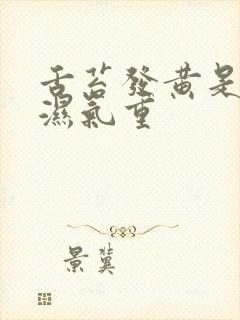 舌苔發黄是
濕氣重
景冀